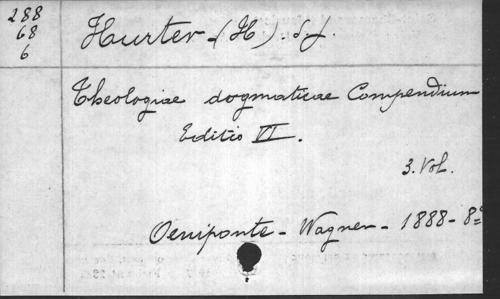 288
68
6
Hurter - (H). S.J.
Theologiae dogmaticae Compendium
Editio VI.
3. Vol.
Oeniponte - Wagner - 1888 - 8º